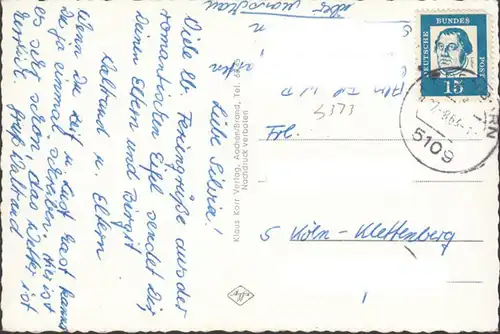 Liebe Silvia!
Viele lb. Feriengrüße aus der
romantischen Eifel sendet Dir,
Deinen Eltern und Birgit
Waltraud u. Eltern
Wenn Du Zeit u. Lust hast kannst
Du ja einmal schreiben. Hier ist
es sehr schön, das Wetter ist
herrlich. Gruß Waltraud
Klaus Korr Verlag, Aachen/Brand, Tel.
Nachdruck verboten
DEUTSCHE BUNDES POST
15
5109
Frl.
5 Köln-Klettenberg